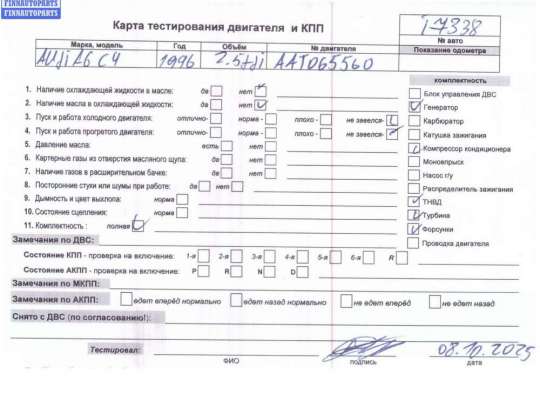 FINNAUTOPARTS
FINNAUTOPARTS
Карта тестирования двигателя и КПП
17338
№ авто
Марка, модель Год Объём № двигателя Показание одометра
Ауди А6 С4 1996 2.5tdi AAT065560
комплектность
1. Наличие охлаждающей жидкости в масле: да нет
Блок управления ДВС
2. Наличие масла в охлаждающей жидкости: да нет
Генератор
3. Пуск и работа холодного двигателя: отлично- норма - плохо - не завелся-
Карбюратор
4. Пуск и работа прогретого двигателя: отлично- норма - плохо - не завелся-
Катушка зажигания
5. Давление масла: есть нет
Компрессор кондиционера
6. Картерные газы из отверстия масляного щупа: да нет
Моновпрыск
7. Наличие газов в расширительном бачке: да нет
Насос г/у
8. Посторонние стуки или шумы при работе: да нет
Распределитель зажигания
9. Дымность и цвет выхлопа: норма
ТНВД
10. Состояние сцепления: норма
Турбина
11. Комплектность : полная
Форсунки
Замечания по ДВС:
Проводка двигателя
Состояние КПП - проверка на включение: 1-я 2-я 3-я 4-я 5-я 6-я R
Состояние АКПП - проверка на включение: P R N D
Замечания по МКПП:
Замечания по АКПП: едет вперёд нормально едет назад нормально не едет вперёд не едет назад
Снято с ДВС (по согласованию!):
Тестировал: 08.10.2025
ФИО подпись дата